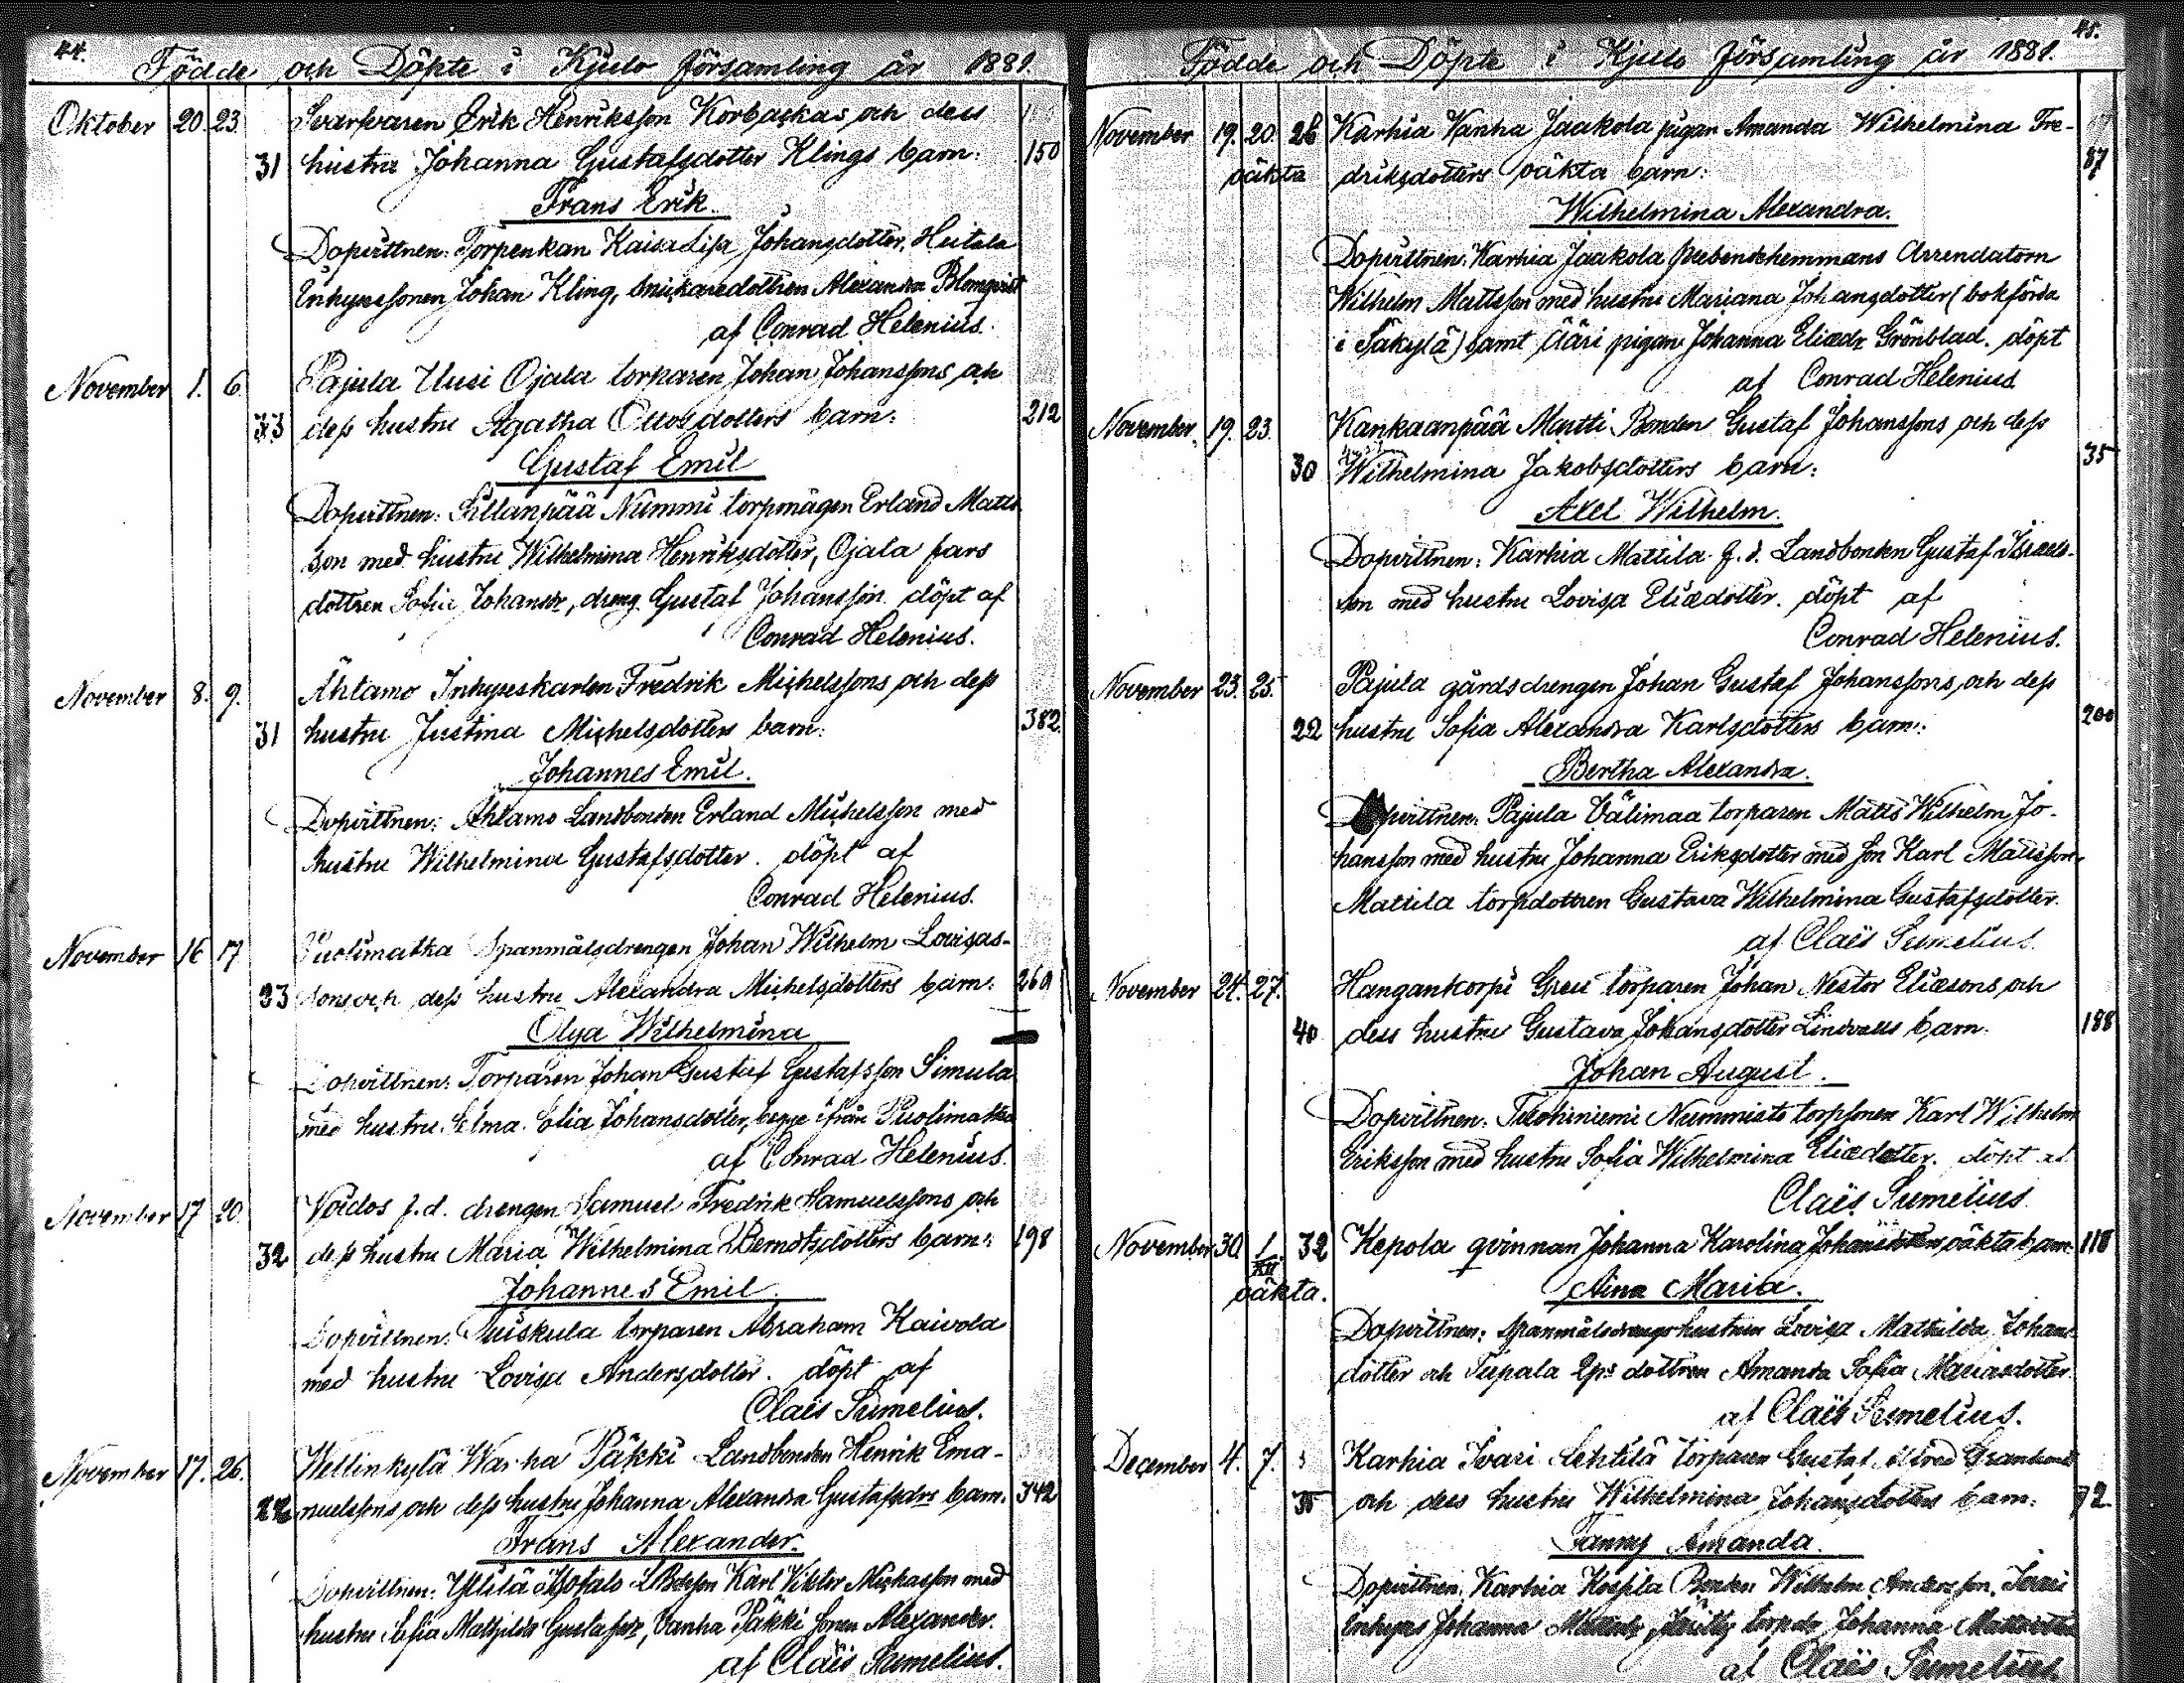 44.
Födde och Döpte i Kjulo församling år 1881.
Oktober 20. 23. Svarfvaren Erik Henriksson Korbackas och dess
31 hustru Johanna Gustafsdotter Klings barn: 150
Frans Erik.
Dopvittnen: Torpenkan Kaisa Lisa Johansdotter, Heitala
Inhysessonen Johan Kling, snickaredottren Alexandra Blomqvist
af Conrad Helenius.
November 1. 6. Pajula Uusi Ojala torparen Johan Johanssons och
33 dess hustru Agatha Ottosdotters barn: 212
Gustaf Emil
Dopvittnen: Sillanpää Nummi torpmågen Erland Matts
son med hustru Wilhelmina Henriksdotter, Ojala fars
dottren Sofia Johansdr, dreng Gustaf Johansson döpt af
Conrad Helenius.
November 8. 9. Ahtamo Inhyseskarlen Fredrik Michelssons och dess
31 hustru Justina Michelsdotters barn: 382
Johannes Emil.
Dopvittnen: Ahtamo Landbonden Erland Michelsson med
hustru Wilhelmina Gustafsdotter. döpt af
Conrad Helenius.
November 16 17 Puolimatka Spanmålsdrengen Johan Wilhelm Lovisas-
23 sons och dess hustru Alexandra Michelsdotters barn:
Olga Wilhelmina
Dopvittnen: Torparen Johan Gustaf Gustafsson Simula
med hustru Selma Johansdotter, begge ifrån Puolimatka
af Conrad Helenius.
November 17 20. Voidos f.d. drengen Samuel Fredrik Samuelssons och
32 dess hustru Maria Wilhelmina Berndtsdotters barn: 198
Johannes Emil.
Dopvittnen: Tuiskula torparen Abraham Kaivola
med hustru Lovisa Andersdotter. döpt af
Claës Sumelius.
November 17. 26. Wellinkylä Wanha Päkki Landbonden Henrik Ema-
22 nuelssons och dess hustru Johanna Alexandra Gustafsdrs barn. 342
Frans Alexander.
Dopvittnen: Karl Viktor med
hustru Sofia Mathilda Gustafsdr, Vanha Päkki sonen Alexander.
af Claës Sumelius.
45.
Födde och Döpte i Kjulo församling år 1881.
November 19. 20. 26 Karhia Vanha Jaakola pigan Amanda Wilhelmina Fre- 87
oäkta driksdotters oäkta barn:
Wilhelmina Alexandra.
Dopvittnen: Karhia Jaakola prebendehemmans Arrendatorn
Wilhelm Mattsson med hustru Mariana Johansdotter (bokförda
i Säkylä) samt Ääri pigan Johanna Eliædr Grönblad. döpt
af Conrad Helenius
November 19. 23. Kankaanpää Martti Bonden Gustaf Johanssons och dess
30 Wilhelmina Jakobsdotters barn: 35
Axel Wilhelm.
Dopvittnen: Karhia Mattila f.d. Landbonden Gustaf Isræls-
son med hustru Lovisa Eliædotter. döpt af
Conrad Helenius.
November 23. 25. Pajula gårdsdrengen Johan Gustaf Johanssons och dess
22 hustru Sofia Alexandra Karlsdotters barn: 200
Bertha Alexandra.
Dopvittnen: Pajula Välimaa torparen Matts Wilhelm Jo-
hansson med hustru Johanna Eriksdotter med son Karl Mattsson,
Mattila torpdottren Gustava Wilhelmina Gustafsdotter.
af Claës Sumelius
November 24. 27. Hangankorpi torparen Johan Nestor Eliæsons och
40 dess hustru Gustava Johansdotter Lindvalls barn. 188
Johan August.
Dopvittnen: Tuohiniemi Nummisto torpsonen Karl Wilhelm
Eriksson med hustru Sofia Wilhelmina Eliædotter. döpt af
Claës Sumelius.
November 30. 1/XII 32 Kepola qvinnan Johanna Karolina Johansdotters oäkta barn 118
oäkta. Aina Maria.
Dopvittnen: Spanmålsdrengshustrun Lovisa Mathilda Johans-
dotter och dottren Amanda Sofia Mariasdotter.
af Claës Sumelius.
December 4. 7. Karhia Ivari Lehtilä torparen Gustaf Alfred
35 och dess hustru Wilhelmina Johansdotters barn. 72.
Fanny Amanda.
Dopvittnen: Karhia Bonden Wilhelm Andersson, Ivari
inhyses Johanna torpdr Johanna
af Claës Sumelius